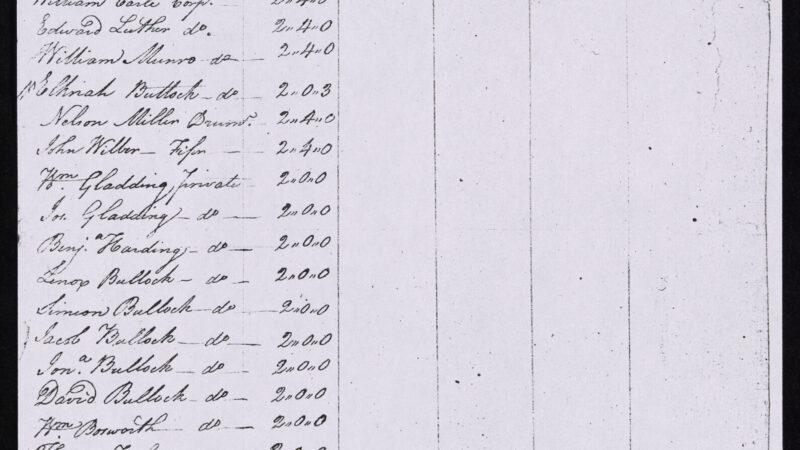 William Earle Corp.l 2"4"0
Edward Luther do. 2"4"0
William Munro do 2"4"0
Elknah Bullock do 2"0"3
Nelson Miller Drumr. 2"4"0
John Wilber Fifer 2"4"0
Wm Gladding, private 2"0"0
Jos. Gladding do 2"0"0
Benj.a Harding do 2"0"0
Lenox Bullock do 2"0"0
Simeon Bullock do 2"0"0
Jacob Bullock do 2"0"0
Jon.a Bullock do 2"0"0
David Bullock do 2"0"0
Wm Bosworth do 2"0"0